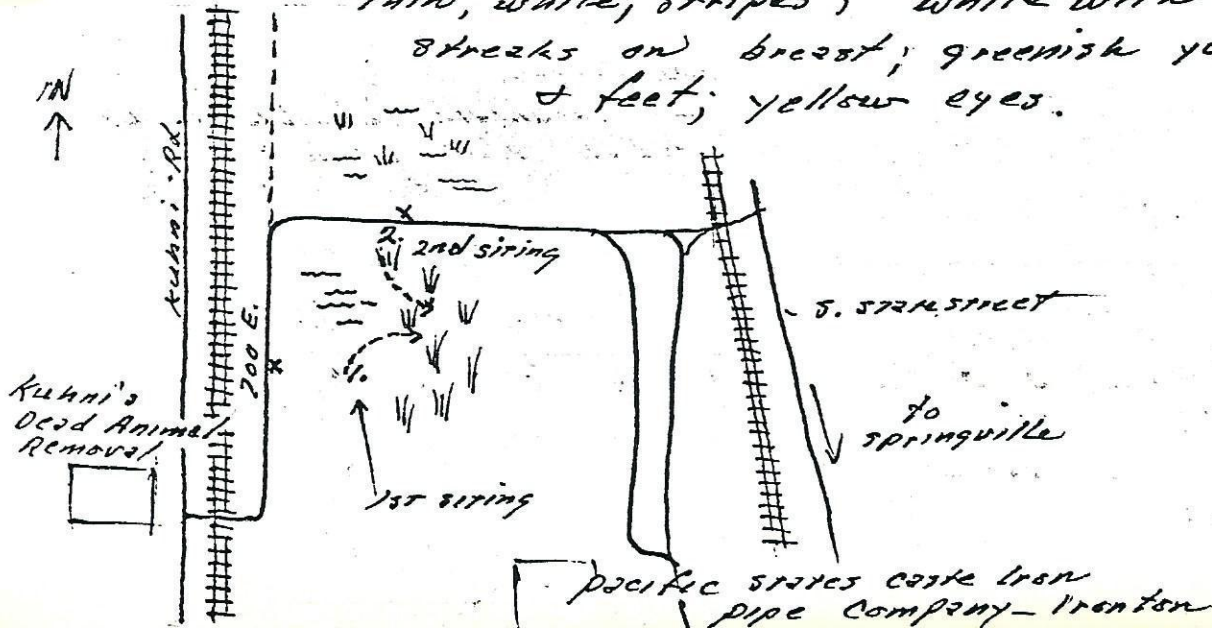 thin, white, stripes; white with
streaks on breast; greenish
& feet; yellow eyes.
N
Kuhni Rd.
200 E.
2. 2nd siting
S. State street
Kuhni's
Dead Animal
Removal
1.
to
springville
1st siting
pacific states caste Iron
pipe company - Ironton